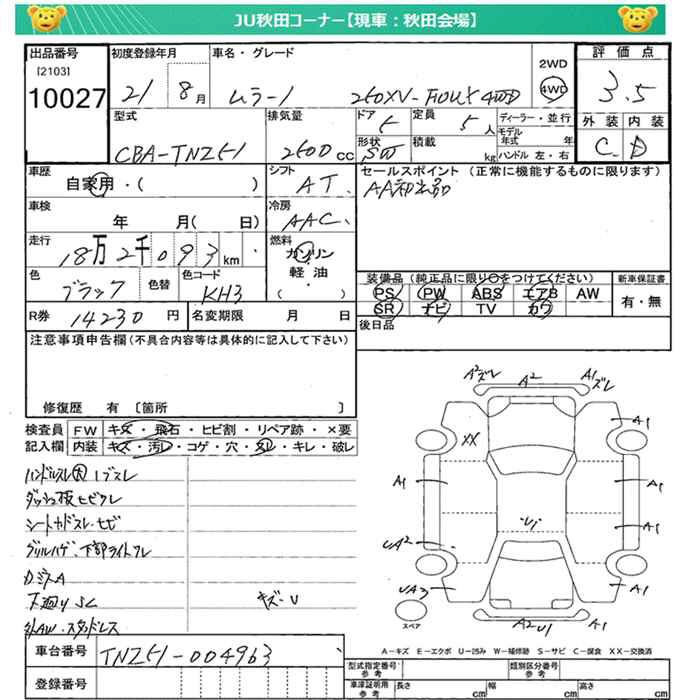 JU秋田コーナー【現車:秋田会場】
出品番号 初度登録年月 車名・グレード 2WD 評価点
[2103]
10027 21 8月 ムラーノ 250XV-FOUR 4WD 4WD 3.5
型式 排気量 ドア 定員 ディーラー・並行 外装 内装
CBA-TNZ51 2500cc 5 5人 モデル年式 年
形状 SW 積載 kg ハンドル 左・右 C D
車歴 自家用・( ) シフト AT セールスポイント(正常に機能するものに限ります)
車検 年 月( 日) 冷房 AAC AA初出品
走行 18万2千093km 燃料 ガソリン
軽油・( )
色 ブラック 色替 色コード KH3
装備品(純正品に限り○をつけてください) 新車保証書
PS PW ABS エアB AW 有・無
SR ナビ TV カワ
R券 14230円 名変期限 月 日 後日品
注意事項申告欄(不具合内容等は具体的に記入して下さい)
修復歴 有〔箇所 〕
検査員 FW キズ・飛石・ヒビ割・リペア跡・×要
記入欄 内装 キズ・汚レ・コゲ・穴・スレ・キレ・破レ
ハンドルスレ大 イブスレ
ダッシュ板ヒビワレ
シートカドスレ・ヒビ
グリルハゲ、下部ライトワレ
ロジスA
下廻りSC キズ・U
社外AW・スタッドレス
A2ズレ A2 A1ズレ
XX A1
A1 A1
U1 A1
UA2
UA3 A1
スペア A2U1
A-キズ E-エクボ U-凹み W-補修跡 S-サビ C-腐食 XX-交換済
車台番号 TNZ51-004963
登録番号
型式指定番号参考 類別区分番号参考
車庫証明用参考 長さ cm 幅 cm 高さ cm